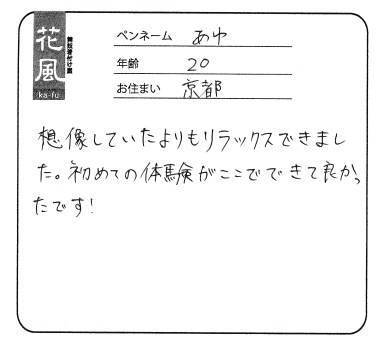 花風
ka-fu
舞妓着付け班
ペンネーム あゆ
年齢 20
お住まい 京都
想像していたよりもリラックスできまし
た。初めての体験がここでできて良かっ
たです!